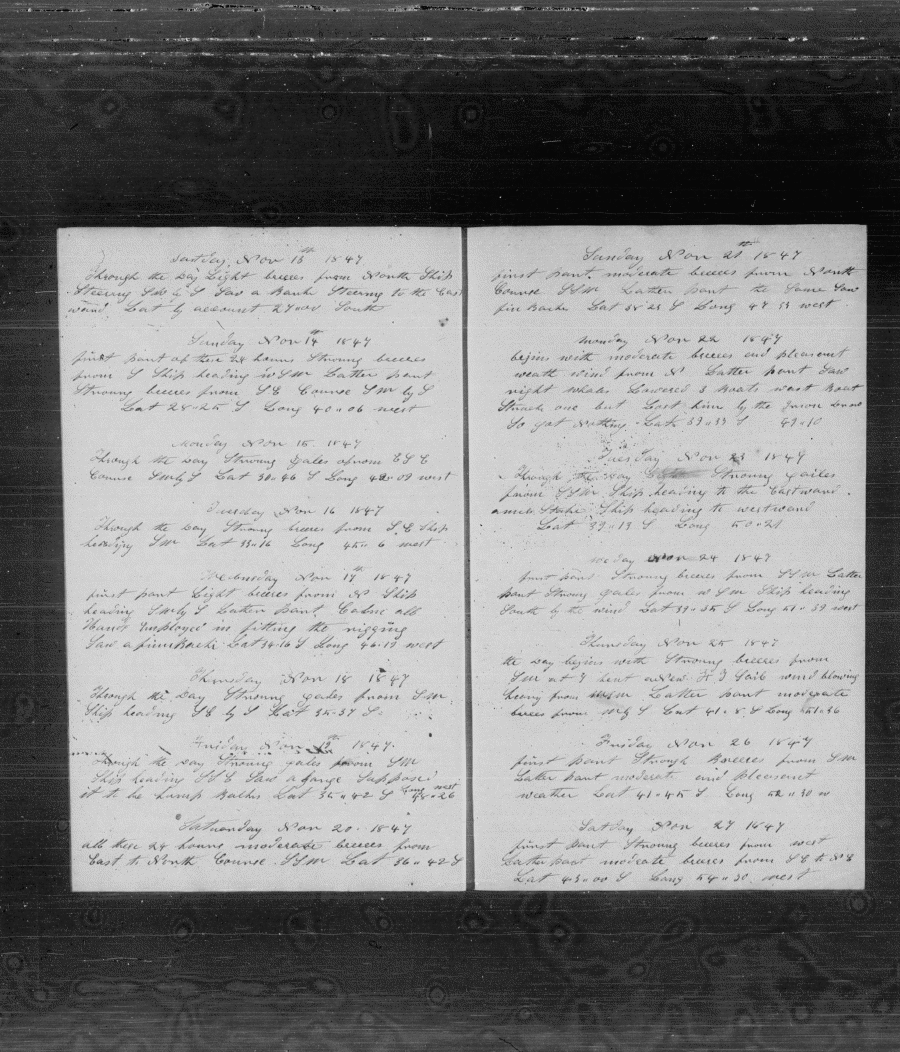 Satday Nov 13th 1847
Through the Day Light breses from North Ship
Steering SW by S Saw a Barke Steering to the East
ward Lat by account 27"00 South
Sunday Nov 14th 1847
first part of these 24 hours Stroung breeses
from S Ship heading WSW Latter part
Stroung breeses from SE Course SW by S
Lat 28"25 S Long 40"06 west
Monday Nov 15 1847
Through the day Stroung gales from ESE
Course SWbyS Lat 30"46 S Long 42"09 west
Tuesday Nov 16 1847
Through the Day Stroung breses from SE Ship
heading SW Lat 33"16 Long 45"6 west
Wednusday Nov 17th 1847
first part Light breeses from N Ship
heading SWby S Latter part Calme all
Hands Imployed in fitting the rigging
Saw a finn Backe Lat 34.16 S Long 46.19 west
Thursday Nov 18 1847
Through the Day Stroung gales from SW
Ship heading SE by S Lat 35.37 S.
Friday Nov 19th 1847.
Through the Day Stroung gales from SW
Ship heading SSE Saw a Supposed
it to be hump Backes Lat 35"42 S Long 48"26 west
Saturday Nov 20. 1847
all these 24 hours moderate breeses from
East to North Course SSW Lat 36"42 S
Sunday Nov 21th 1847
first part moderate breeses from North
Course SSW Latter part the Same Saw
fin Backes Lat 38"23 S Long 47 33 west
Monday Nov 22 1847
begins with moderate breeses and pleasent
weath wind from N Latter part Saw
right whales Lowered 3 Boats wast Boat
Struck one but Lost him by the
So got Nothing. Lat 39"33 S 49"10
Tuesday Nov 23 1847
Through the Day Stroung gailes
from SSW Ship heading to the Eastward.
Ship heading to westward
Lat 39"13 S Long 50"21
weday Nov 24 1847
furst part Stroung breeses from SSW Latter
part Stroung gales from WSW Ship heading
South by the wind Lat 39"55 S Long 51"39 west
Thursday Nov 25 1847
the Day begins with Stroung breeses from
SW at 7 bent Sail wind blowing
heavy from WSW Latter part moderate
breses from WbyS Lat 41"8 S Long 51"36
Friday Nov 26 1847
first part Strough Breeses from SW
Latter part moderate and pleasent
weather Lat 41"45 S. Long 52"30 w
Satday Nov 27 1847
furst part Stroung breeses from west
Latter part moderate breses from SE to NE
Lat 43"00 S Long 54"30 west